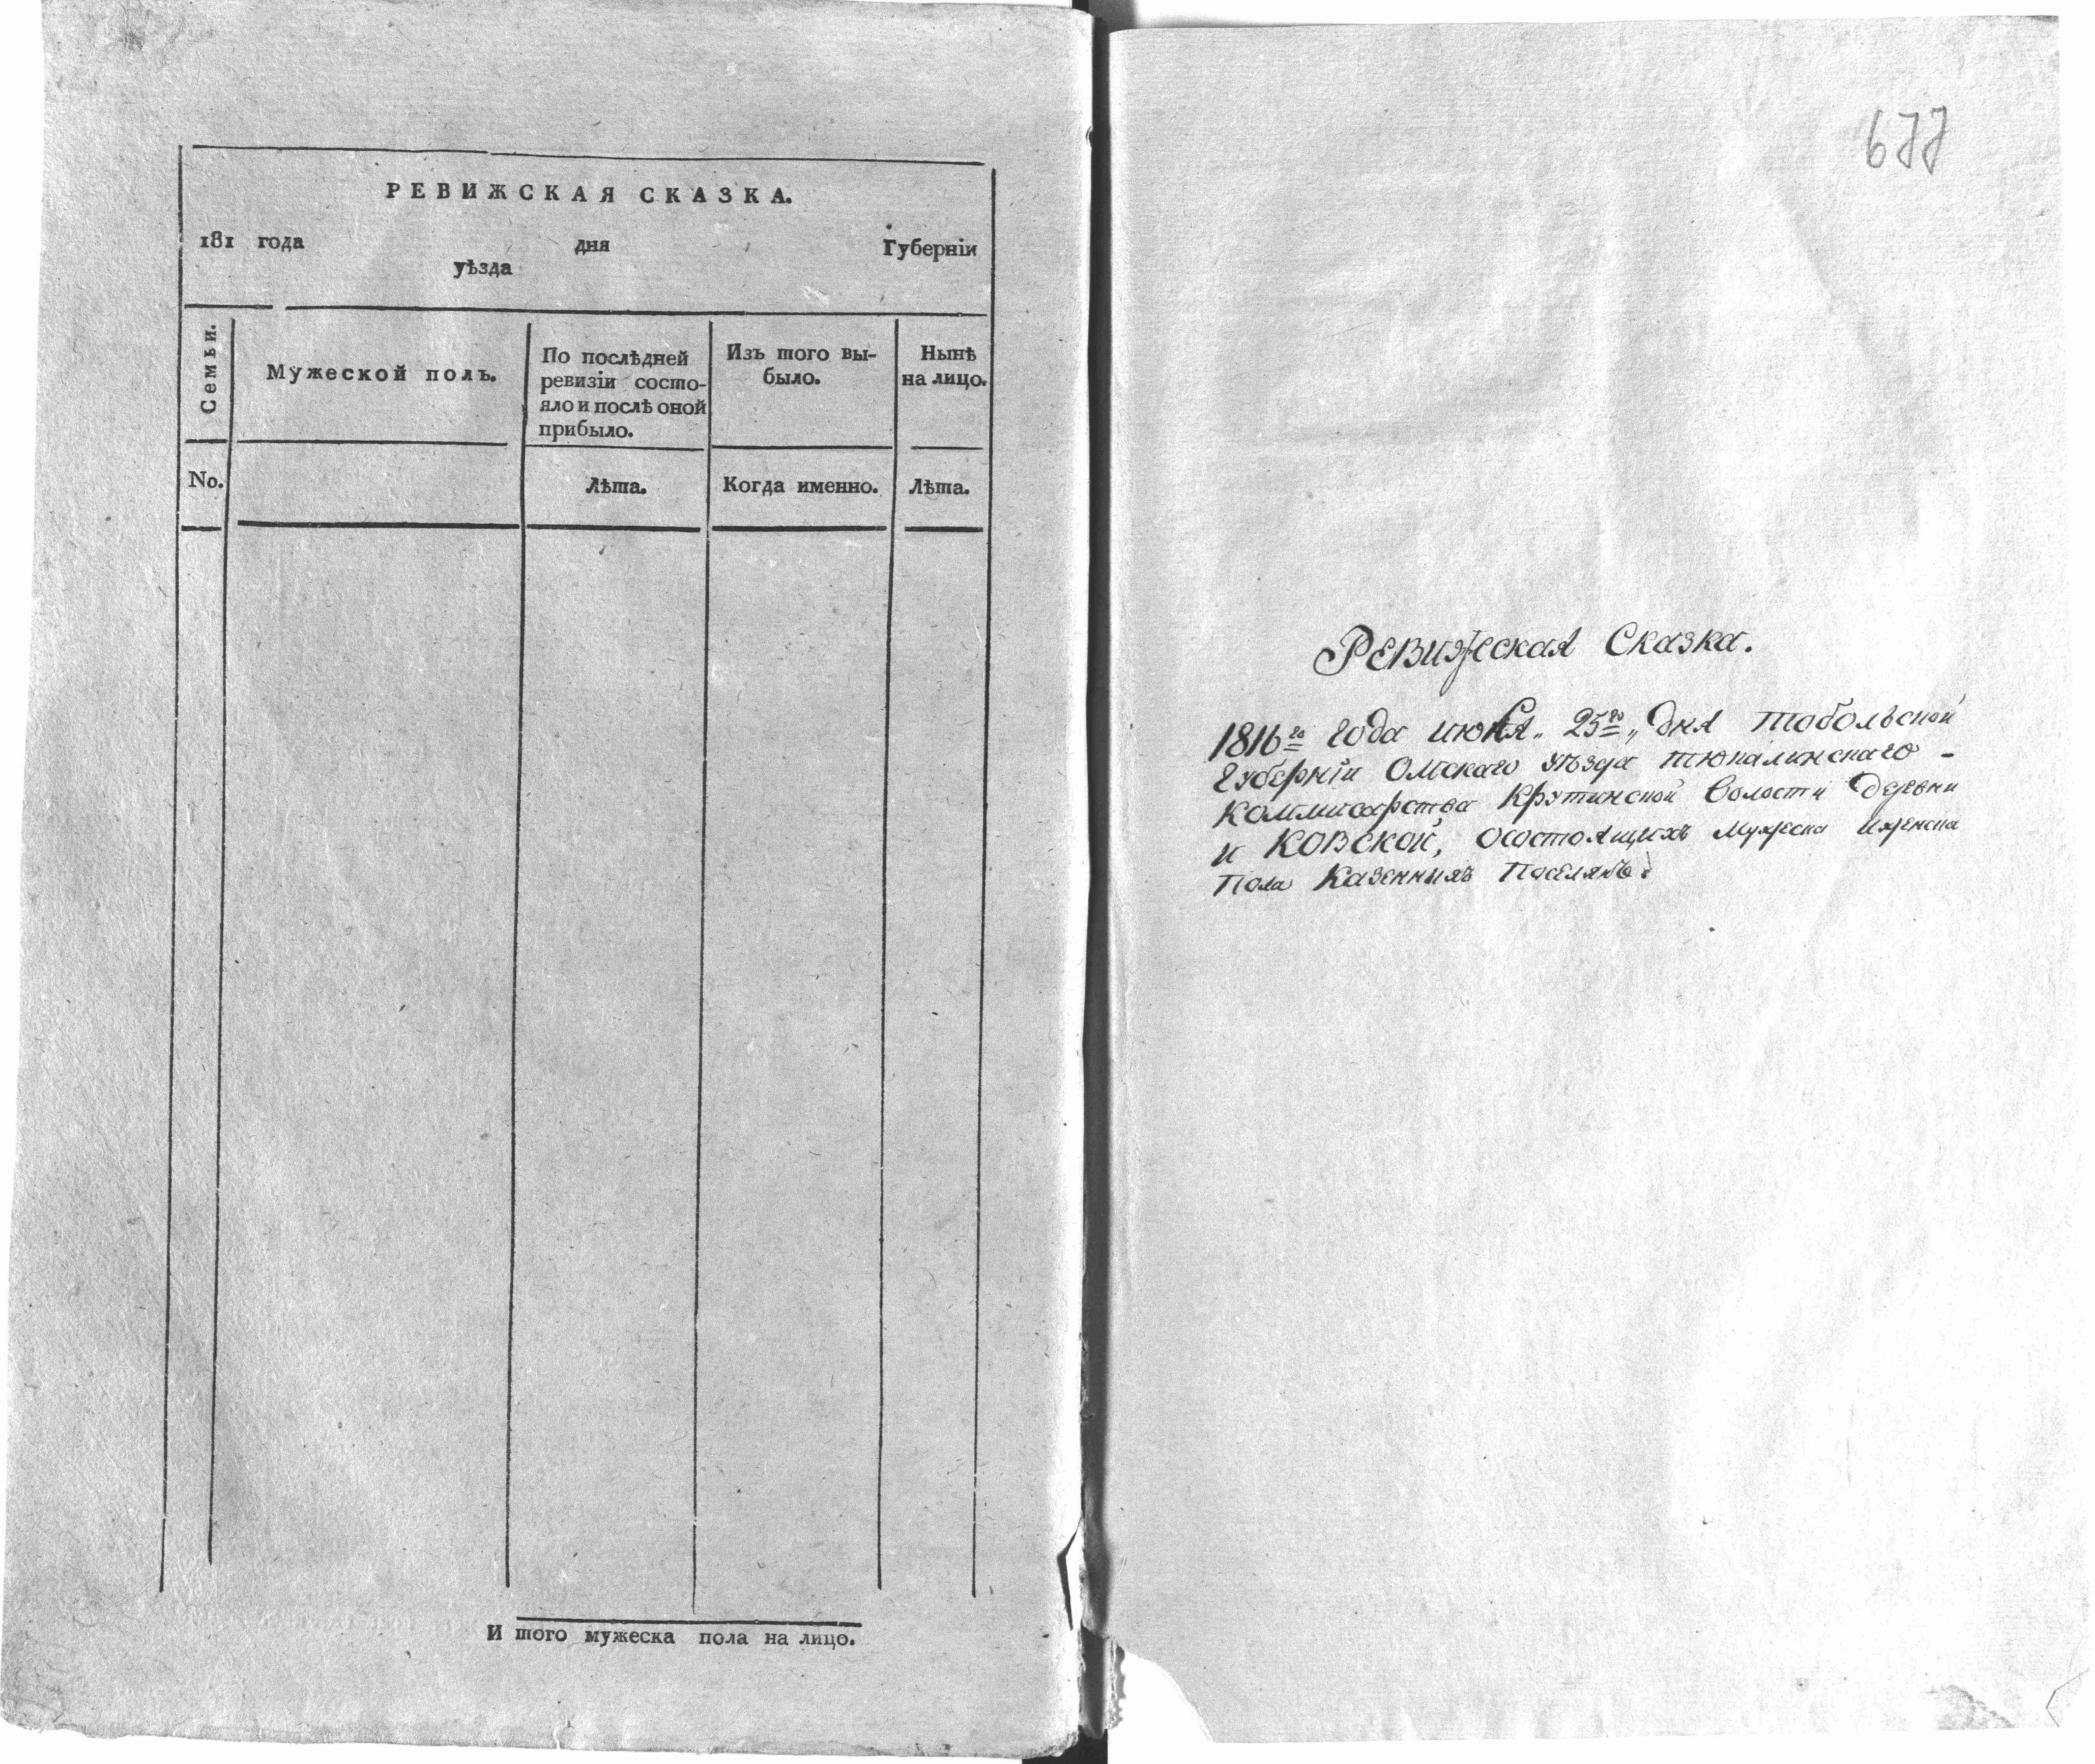 РЕВИЖСКАЯ СКАЗКА.
181 года дня Губерніи
уѣзда
Семьи.
Мужеской полъ.
По послѣдней
ревизіи состо-
яло и послѣ оной
прибыло.
Изъ того вы-
было.
Нынѣ
на лицо.
No.
Лѣта.
Когда именно.
Лѣта.
И того мужеска пола на лицо.
677
Ревижская Сказка.
1816го Года 25го Дня Тобольской
Губерніи Омскаго уѣзда Тюкалинскаго -
Коммисарства Крутинской Волости Деревни
Иковской, осостоящихъ Мужеска иженска
Пола Казенныхъ Поселянъ.